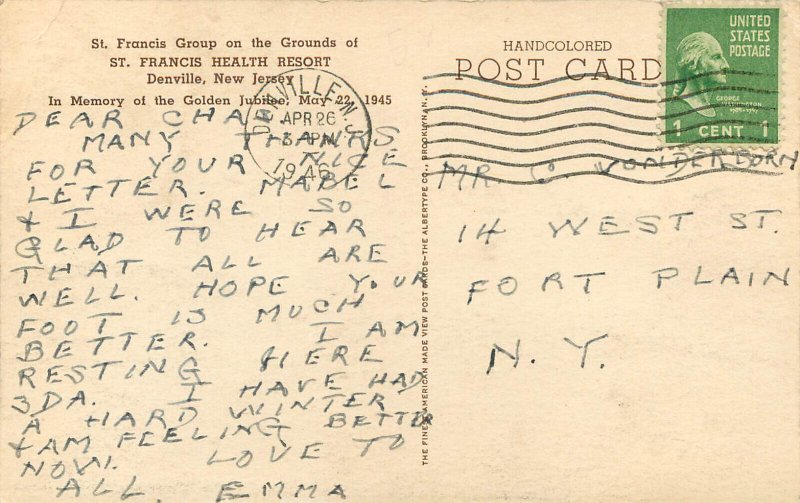 St. Francis Group on the Grounds of
ST. FRANCIS HEALTH RESORT
Denville, New Jersey
In Memory of the Golden Jubilee, May 22, 1945
DEAR CHAS
MANY THANKS
FOR YOUR NICE
LETTER. MABEL
& I WERE SO
GLAD TO HEAR
THAT ALL ARE
WELL. HOPE YOUR
FOOT IS MUCH
BETTER. I AM
RESTING HERE
3DA. I HAVE HAD
A HARD WINTER
& AM FEELING BETTER
NOW. LOVE TO
ALL. EMMA
DENVILLE, N.J.
APR 26
3 PM
1946
THE FINEST AMERICAN MADE VIEW POST CARDS—THE ALBERTYPE CO., BROOKLYN, N.Y.
HANDCOLORED
POST CARD
UNITED
STATES
POSTAGE
GEORGE
WASHINGTON
1 CENT 1
MR. C. VONDERBORN
14 WEST ST.
FORT PLAIN
N.Y.